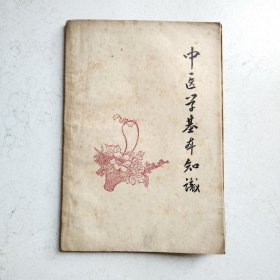 中医学基本知識